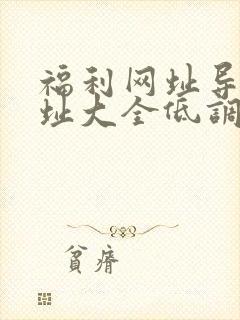 福利网址导
址大全低調
貧瘠